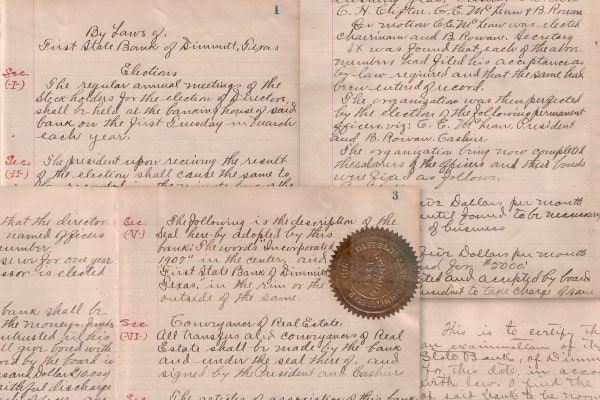 1
By Laws of.
First State Bank of Dimmitt, Texas
Elections
Sec
(-I-)
The regular annual meetings of the
Stock holders for the election of Directors,
shall be held at the banking house of said
bank on the first Tuesday in March
each year.
Sec
(II)
The president upon receiving the result
of the election shall cause the same to
C. H.
C. E. McLean & B. Rowan.
On motion C. E. McLean was elected
Chairman and B. Rowan, Secretary
It was found that each of the above
members had filed his acceptance as
by-law required and that the same had
been entered of record.
The organization was then perfected
by the election of the following permanent
officers, viz: C. E. McLean, President
and B. Rowan, Cashier
The organization being now completed
the salaries of the officers and their bonds
were fixed as follows.
Dollars per month
until found to be necessary
of business
Five Dollars per month
and for $5000
and accepted by board
President to take charge of same
that the director
named officers
number.
serve for one year
is elected
bank shall be
the moneys, funds
entrusted in his
give bond with
by the board in
Dollars $10,000
faithful discharge
3
Sec
(-V-)
The following is the description of the
seal here by adopted by this
bank: The words "Incorporated
1907" in the center, and
First State Bank of Dimmitt
Texas, in the rim or the
outside of the same.
Sec
(-VI-)
Conveyances of Real Estate.
All transfers and conveyances of Real
Estate shall be made by the bank
and under the seal there of, and
signed by the President and Cashier
The articles of association of this bank
This is to certify th
an examination of th
State Bank, of Dimm
for this date, in acco
with law. I find the
of said bank to be